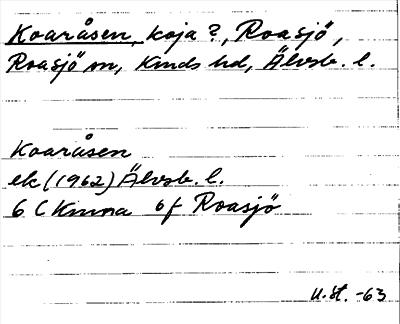 Koaråsen, koja?, Roasjö,
Roasjö sn, Kinds hd, Älvsb. l.
Koaråsen
ek (1962) Älvsb. l.
6 C Kinna 6f Roasjö
U.St. -63